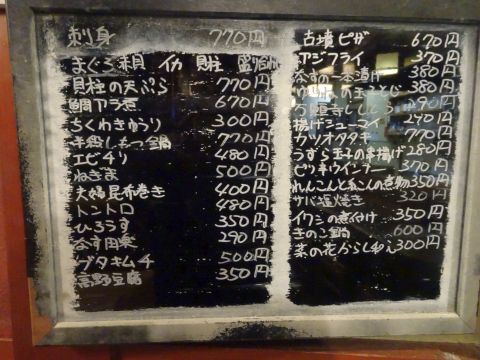 刺身 770円
まぐろ イカ 貝柱 盛り合わせ
貝柱の天ぷら 770円
鯛アラ煮 670円
ちくわきゅうり 300円
もつ鍋 770円
エビチリ 480円
ねぎま 500円
夫婦昆布巻き 400円
トントロ 480円
ひろうす 350円
なす田楽 290円
ブタキムチ 500円
高野豆腐 350円
古墳ピザ 670円
アジフライ 370円
なすの一本漬け 380円
玉子とじ 380円
揚げギョーザ 290円
カツオタタキ 770円
うずら玉子の串揚げ 280円
ピリ辛ウインナー 370円
れんこんと糸こんの煮物 350円
サバ塩焼き 320円
イワシの煮付け 350円
きのこ鍋 600円
菜の花からし和え 300円